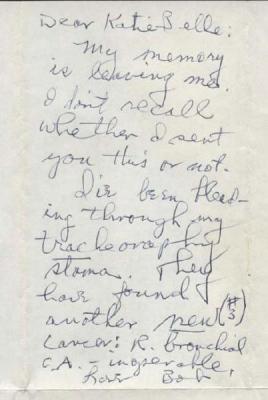 Dear Katie Belle:
My memory
is leaving me.
I don't recall
whether I sent
you this or not.
I've been bleed-
ing through my
tracheography
stoma. They
have found
another new (#3)
cancer: R. bronchial
C.A. - inoperable,
Love Bob